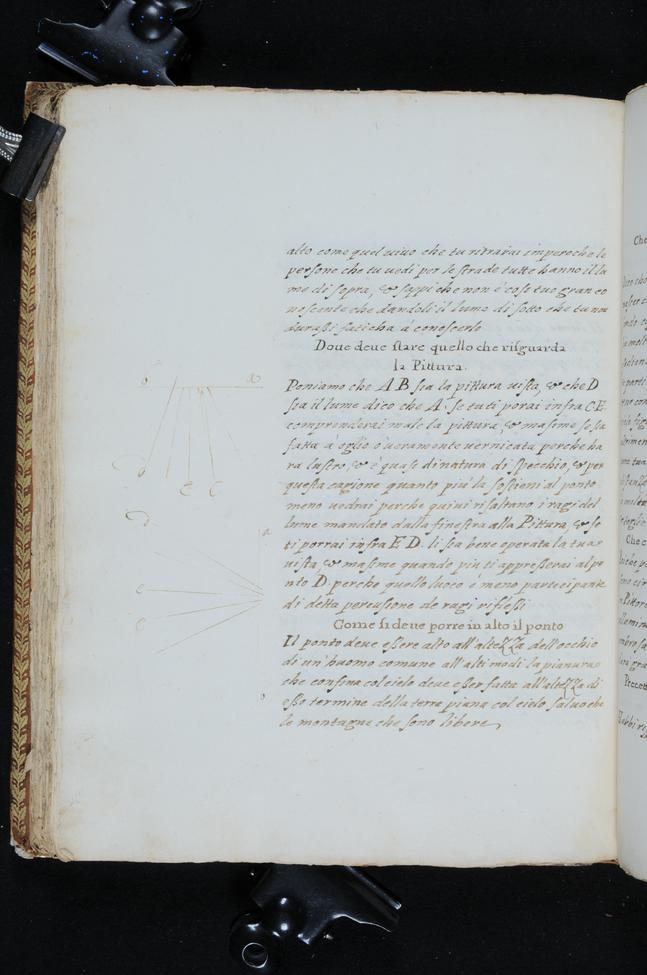 alto come quel uiuo che tu ritrarai imperoche le
persone che tu uedi per le strade tutte hanno il lu
me di sopra, & sappi che non è cosi tuo gran co
noscente che dandoli il lume di sotto che tu non
durassi faticha à conoscerlo
Doue deue stare quello che risguarda
la Pittura.
Poniamo che A B sia la pittura uista, & che D
sia il lume dico che A. se tu ti porai infra C. E.
comprenderai male la pittura, & masime se sa
fatta à oglio ò ueramente uernicata perche ha
ra lustro, & è quasi di natura di specchio, & per
questa cagione quanto piu la sostieni al ponto
meno uedrai perche quiui risaltano i ragi del
lume mandato dalla finestra alla Pittura, & se
ti porrai infra E D. li sia bene operata la tua
uista, & masime quando piu ti appresserai al po
nto D perche quello luoco è meno participante
di detta percusione de ragi riflessi
Come si deue porre in alto il ponto
Il ponto deue essere alto all'altezza dell'occhio
di un'huomo comune all'alti modi la pianura
che confina col cielo deue esser fatta all'altezza di
esso termine della terra piana col cielo saluo che
le montagne che sono libere,
b
a
D
E
C
D
a
E
C
b
Che
Precett